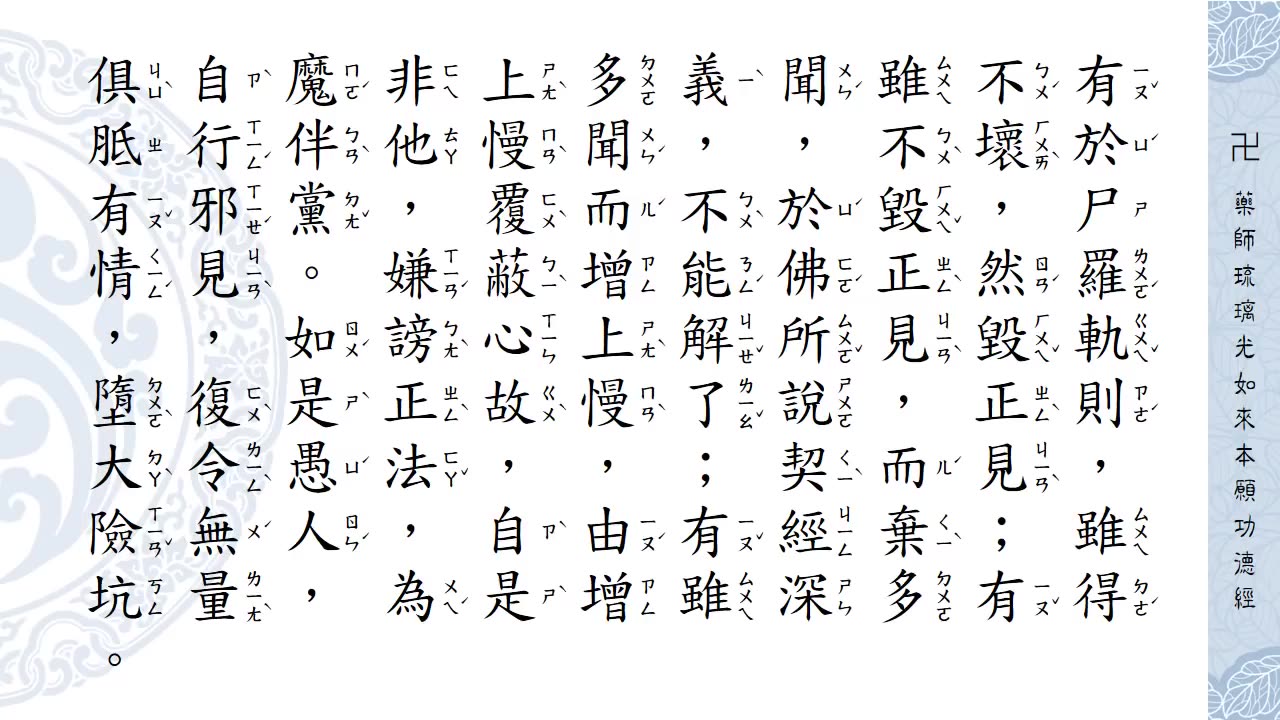 卍 藥師琉璃光如來本願功德經
有於尸羅軌則，雖得
不壞，然毀正見；有
雖不毀正見，而棄多
聞，於佛所說契經深
義，不能解了；有雖
多聞而增上慢，由增
上慢覆蔽心故，自是
非他，嫌謗正法，為
魔伴黨。如是愚人，
自行邪見，復令無量
俱胝有情，墮大險坑。